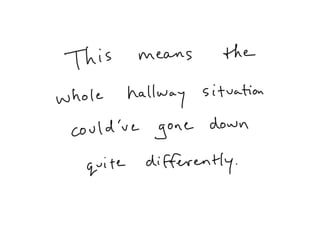 This means the
whole hallway situation
could've gone down
quite differently.